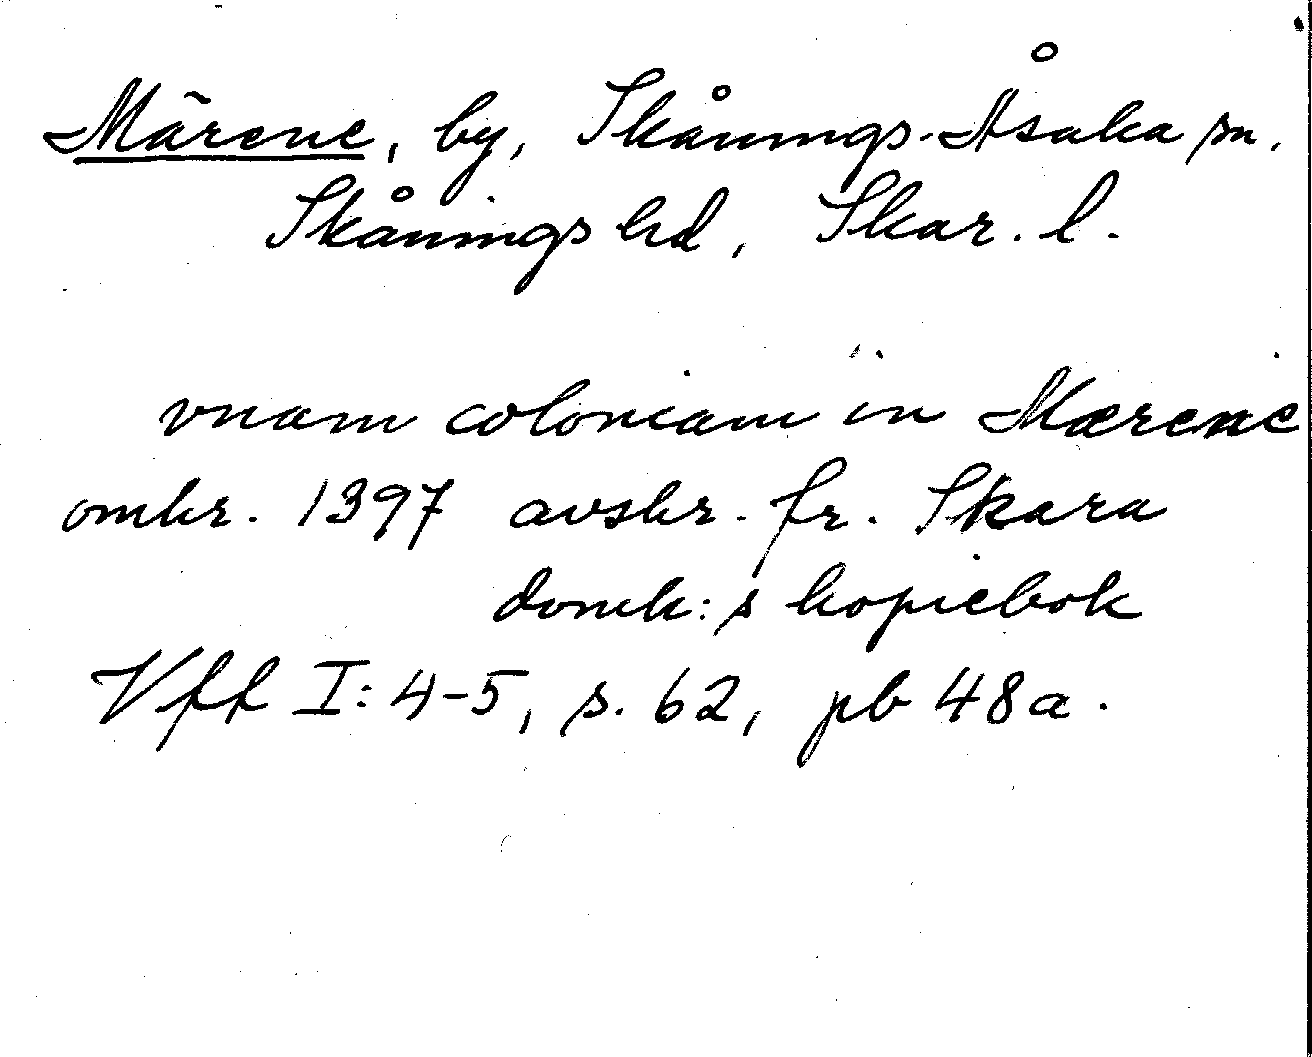 Märene, by, Skånings-Åsaka sn.
Skånings hd, Skar. l.
vnam coloniam in Mærene
omkr. 1397 avskr. fr. Skara
domk:s kopiebok
Vff I: 4-5, s. 62, pb 48a.